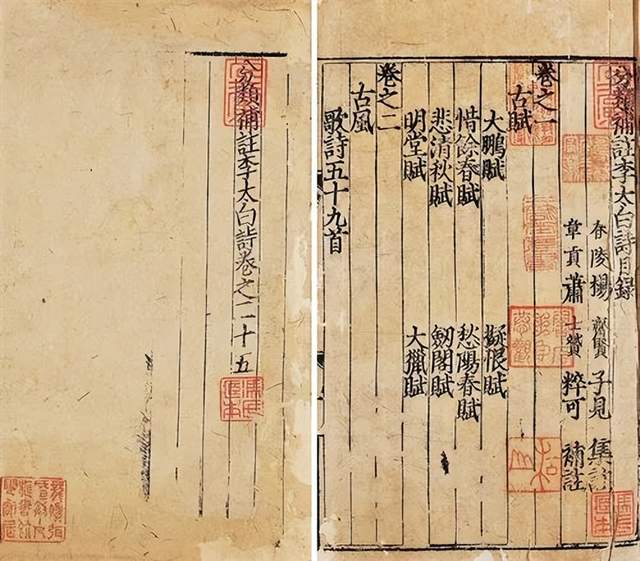 分類補註李太白詩目錄
舂陵楊 齊賢 子見 集註
章貢蕭 士贇 粹可 補註
卷之一
古賦
大鵬賦 擬恨賦
惜餘春賦 愁陽春賦
悲清秋賦 劒閣賦
明堂賦 大獵賦
卷之二
古風
歌詩五十九首
分類補註李太白詩卷之二十五